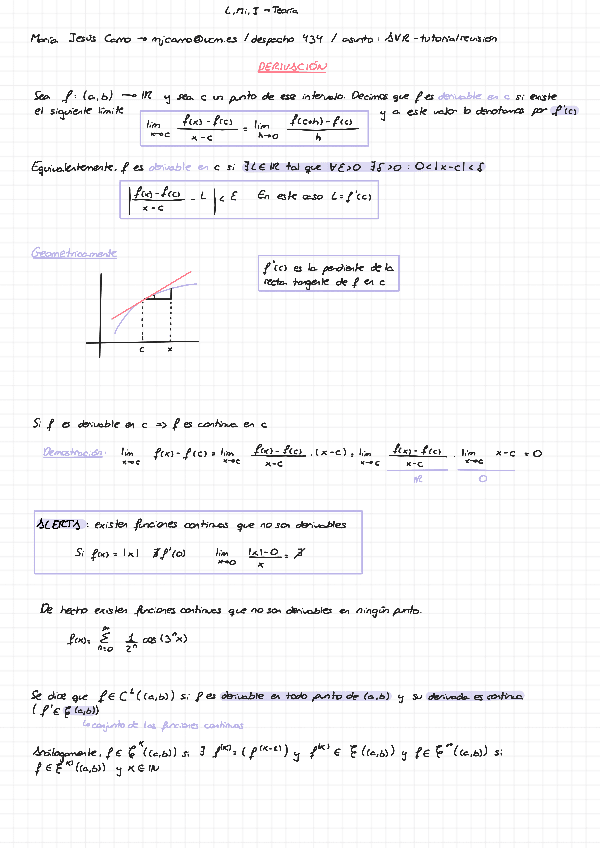 L, Mi, J → Teoría
María Jesús Carro → mjcarro@ucm.es / despacho 434 / asunto: AVR-tutoria/revisión
DERIVACIÓN
Sea f: (a,b) → IR y sea c un punto de ese intervalo. Decimos que f es derivable en c si existe
el siguiente límite lim x→c f(x)-f(c) / x-c = lim h→0 f(c+h)-f(c) / h y a este valor lo denotamos por f'(c)
Equivalentemente, f es derivable en c si ∃ L ∈ IR tal que ∀ε>0 ∃δ>0 : 0<|x-c|<δ
| f(x)-f(c) / x-c - L | < ε En este caso L = f'(c)
Geométricamente
f'(c) es la pendiente de la
recta tangente de f en c
c x
Si f es derivable en c => f es continua en c
Demostración: lim x→c f(x)-f(c) = lim x→c f(x)-f(c) / x-c · (x-c) = lim x→c f(x)-f(c) / x-c · lim x→c x-c = 0
IR 0
ALERTA: existen funciones continuas que no son derivables
Si f(x) = |x| ∄ f'(0) lim x→0 |x|-0 / x = ∄
De hecho existen funciones continuas que no son derivables en ningún punto.
f(x) = ∞ Σ n=0 1 / 2ⁿ cos (3ⁿx)
Se dice que f ∈ C¹((a,b)) si f es derivable en todo punto de (a,b) y su derivada es continua
(f' ∈ ξ(a,b))
↳ conjunto de las funciones continuas